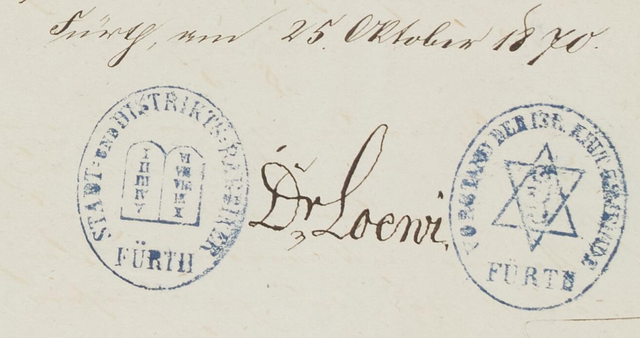 Fürth, am 25. Oktober 1870.
STADT- UND DISTRIKTS-RABBINER
I VI
II VII
III VIII
IV IX
V X
FÜRTH
Dr Loewi
VORSTAND DER ISR. KULT. GEMEINDE
FÜRTH